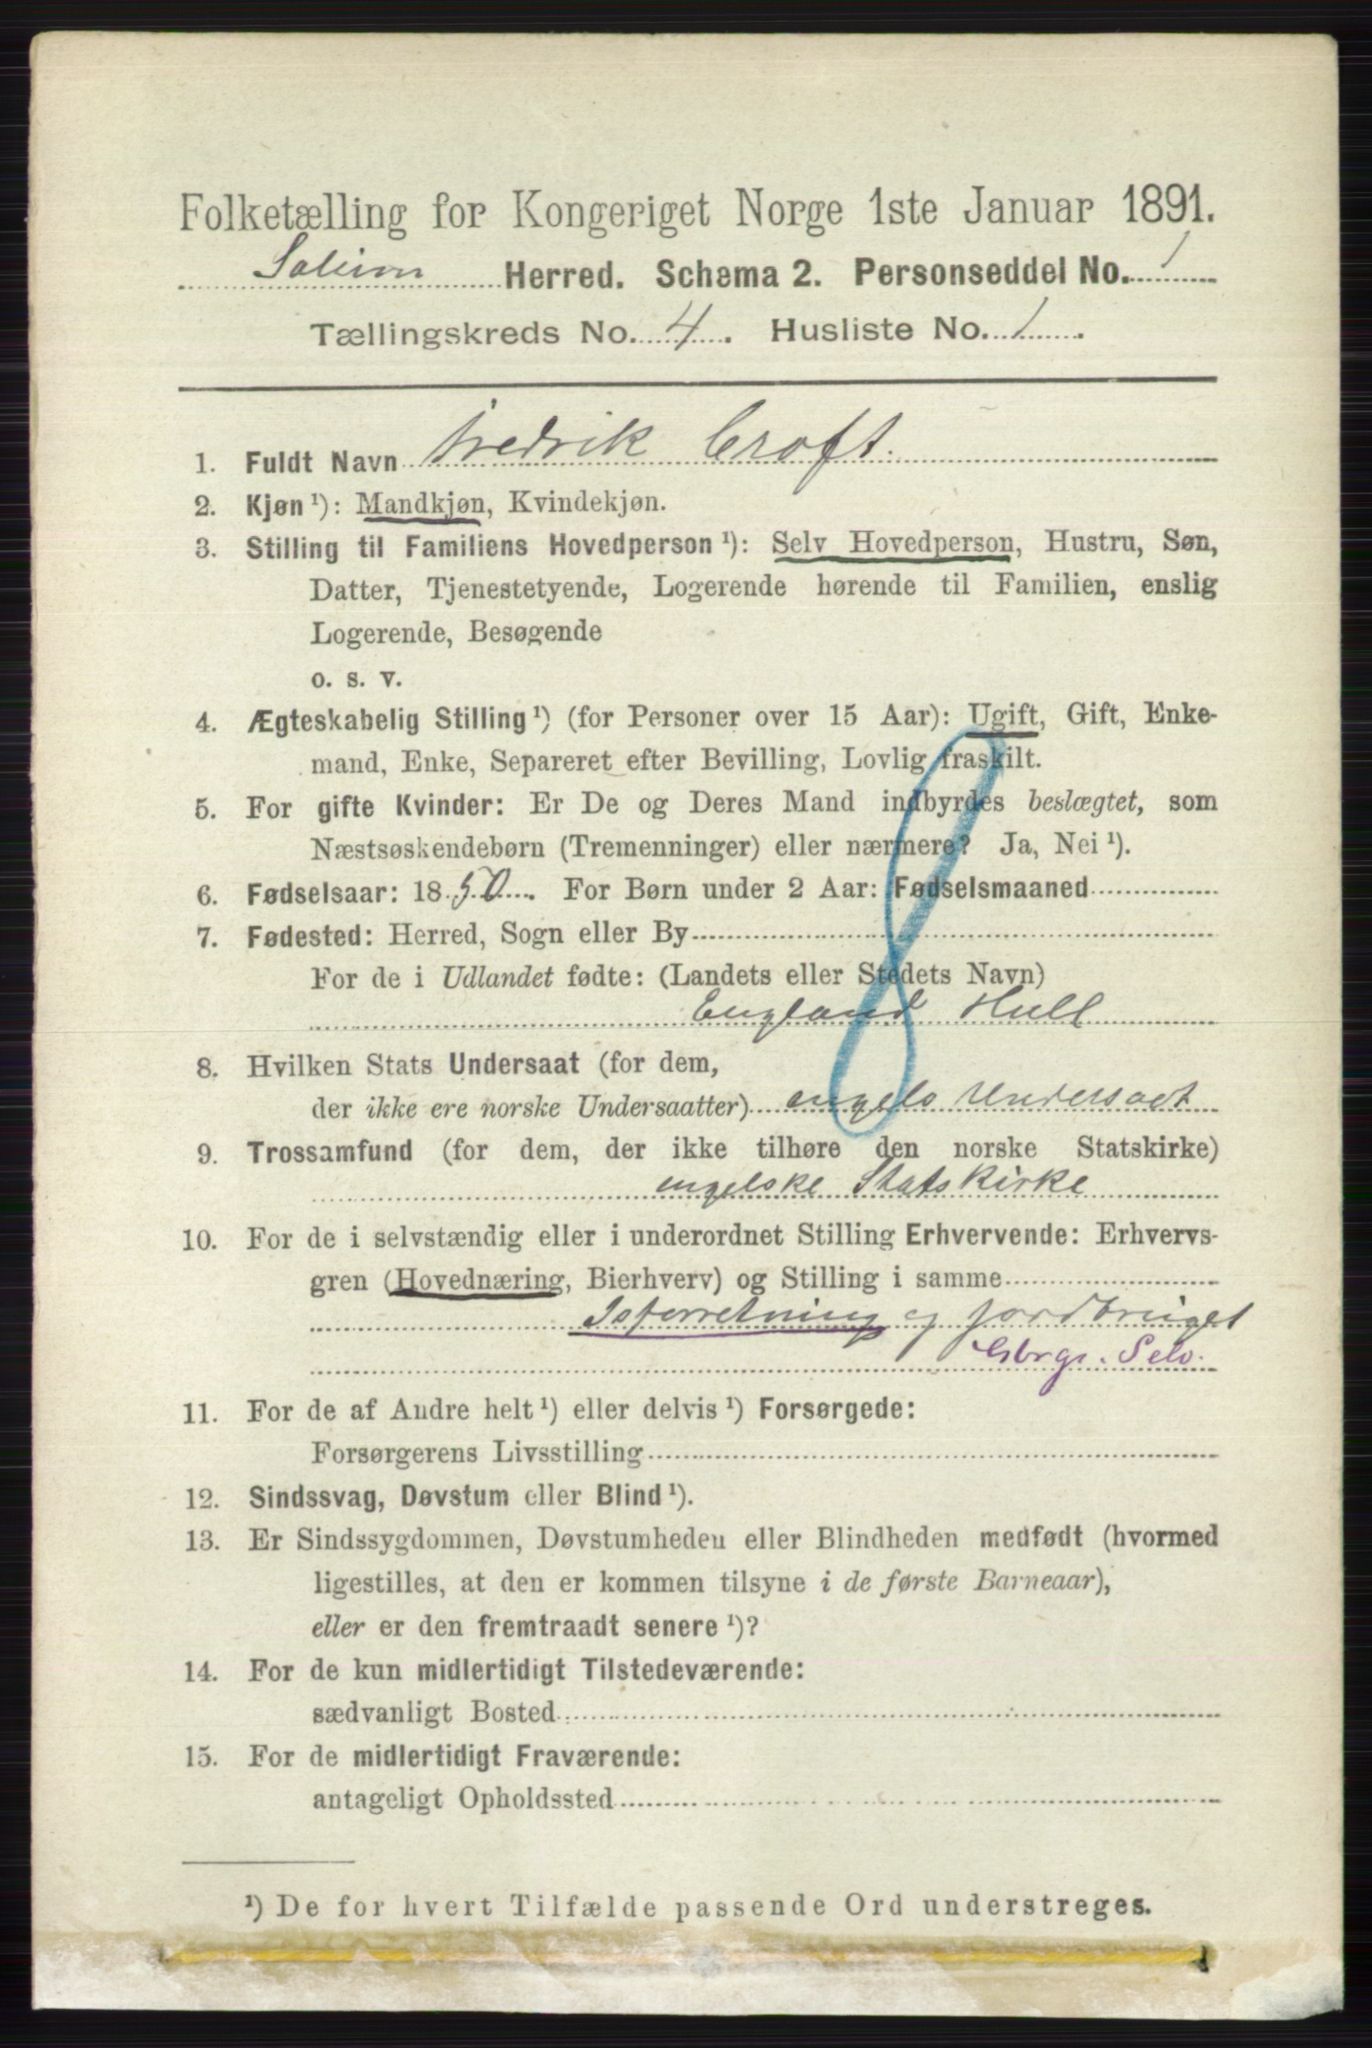 Folketælling for Kongeriget Norge 1ste Januar 1891.
Solum Herred. Schema 2. Personseddel No. 1
Tællingskreds No. 4. Husliste No. 1
1. Fuldt Navn Fredrik Croft.
2. Kjøn ¹): Mandkjøn, Kvindekjøn.
3. Stilling til Familiens Hovedperson ¹): Selv Hovedperson, Hustru, Søn,
Datter, Tjenestetyende, Logerende hørende til Familien, enslig
Logerende, Besøgende
o. s. v.
4. Ægteskabelig Stilling ¹) (for Personer over 15 Aar): Ugift, Gift, Enke-
mand, Enke, Separeret efter Bevilling, Lovlig fraskilt.
5. For gifte Kvinder: Er De og Deres Mand indbyrdes beslægtet, som
Næstsøskendebørn (Tremenninger) eller nærmere? Ja, Nei ¹).
6. Fødselsaar: 1850. For Børn under 2 Aar: Fødselsmaaned
7. Fødested: Herred, Sogn eller By
For de i Udlandet fødte: (Landets eller Stedets Navn)
England Hull
8. Hvilken Stats Undersaat (for dem,
der ikke ere norske Undersaatter) engels Undersaat
9. Trossamfund (for dem, der ikke tilhøre den norske Statskirke)
engelske Statskirke
10. For de i selvstændig eller i underordnet Stilling Erhvervende: Erhvervs-
gren (Hovednæring, Bierhverv) og Stilling i samme
Isforretning og jordbruget
Gbrgr. Selv.
11. For de af Andre helt ¹) eller delvis ¹) Forsørgede:
Forsørgerens Livsstilling
12. Sindssvag, Døvstum eller Blind ¹).
13. Er Sindssygdommen, Døvstumheden eller Blindheden medfødt (hvormed
ligestilles, at den er kommen tilsyne i de første Barneaar),
eller er den fremtraadt senere ¹)?
14. For de kun midlertidigt Tilstedeværende:
sædvanligt Bosted
15. For de midlertidigt Fraværende:
antageligt Opholdssted
¹) De for hvert Tilfælde passende Ord understreges.